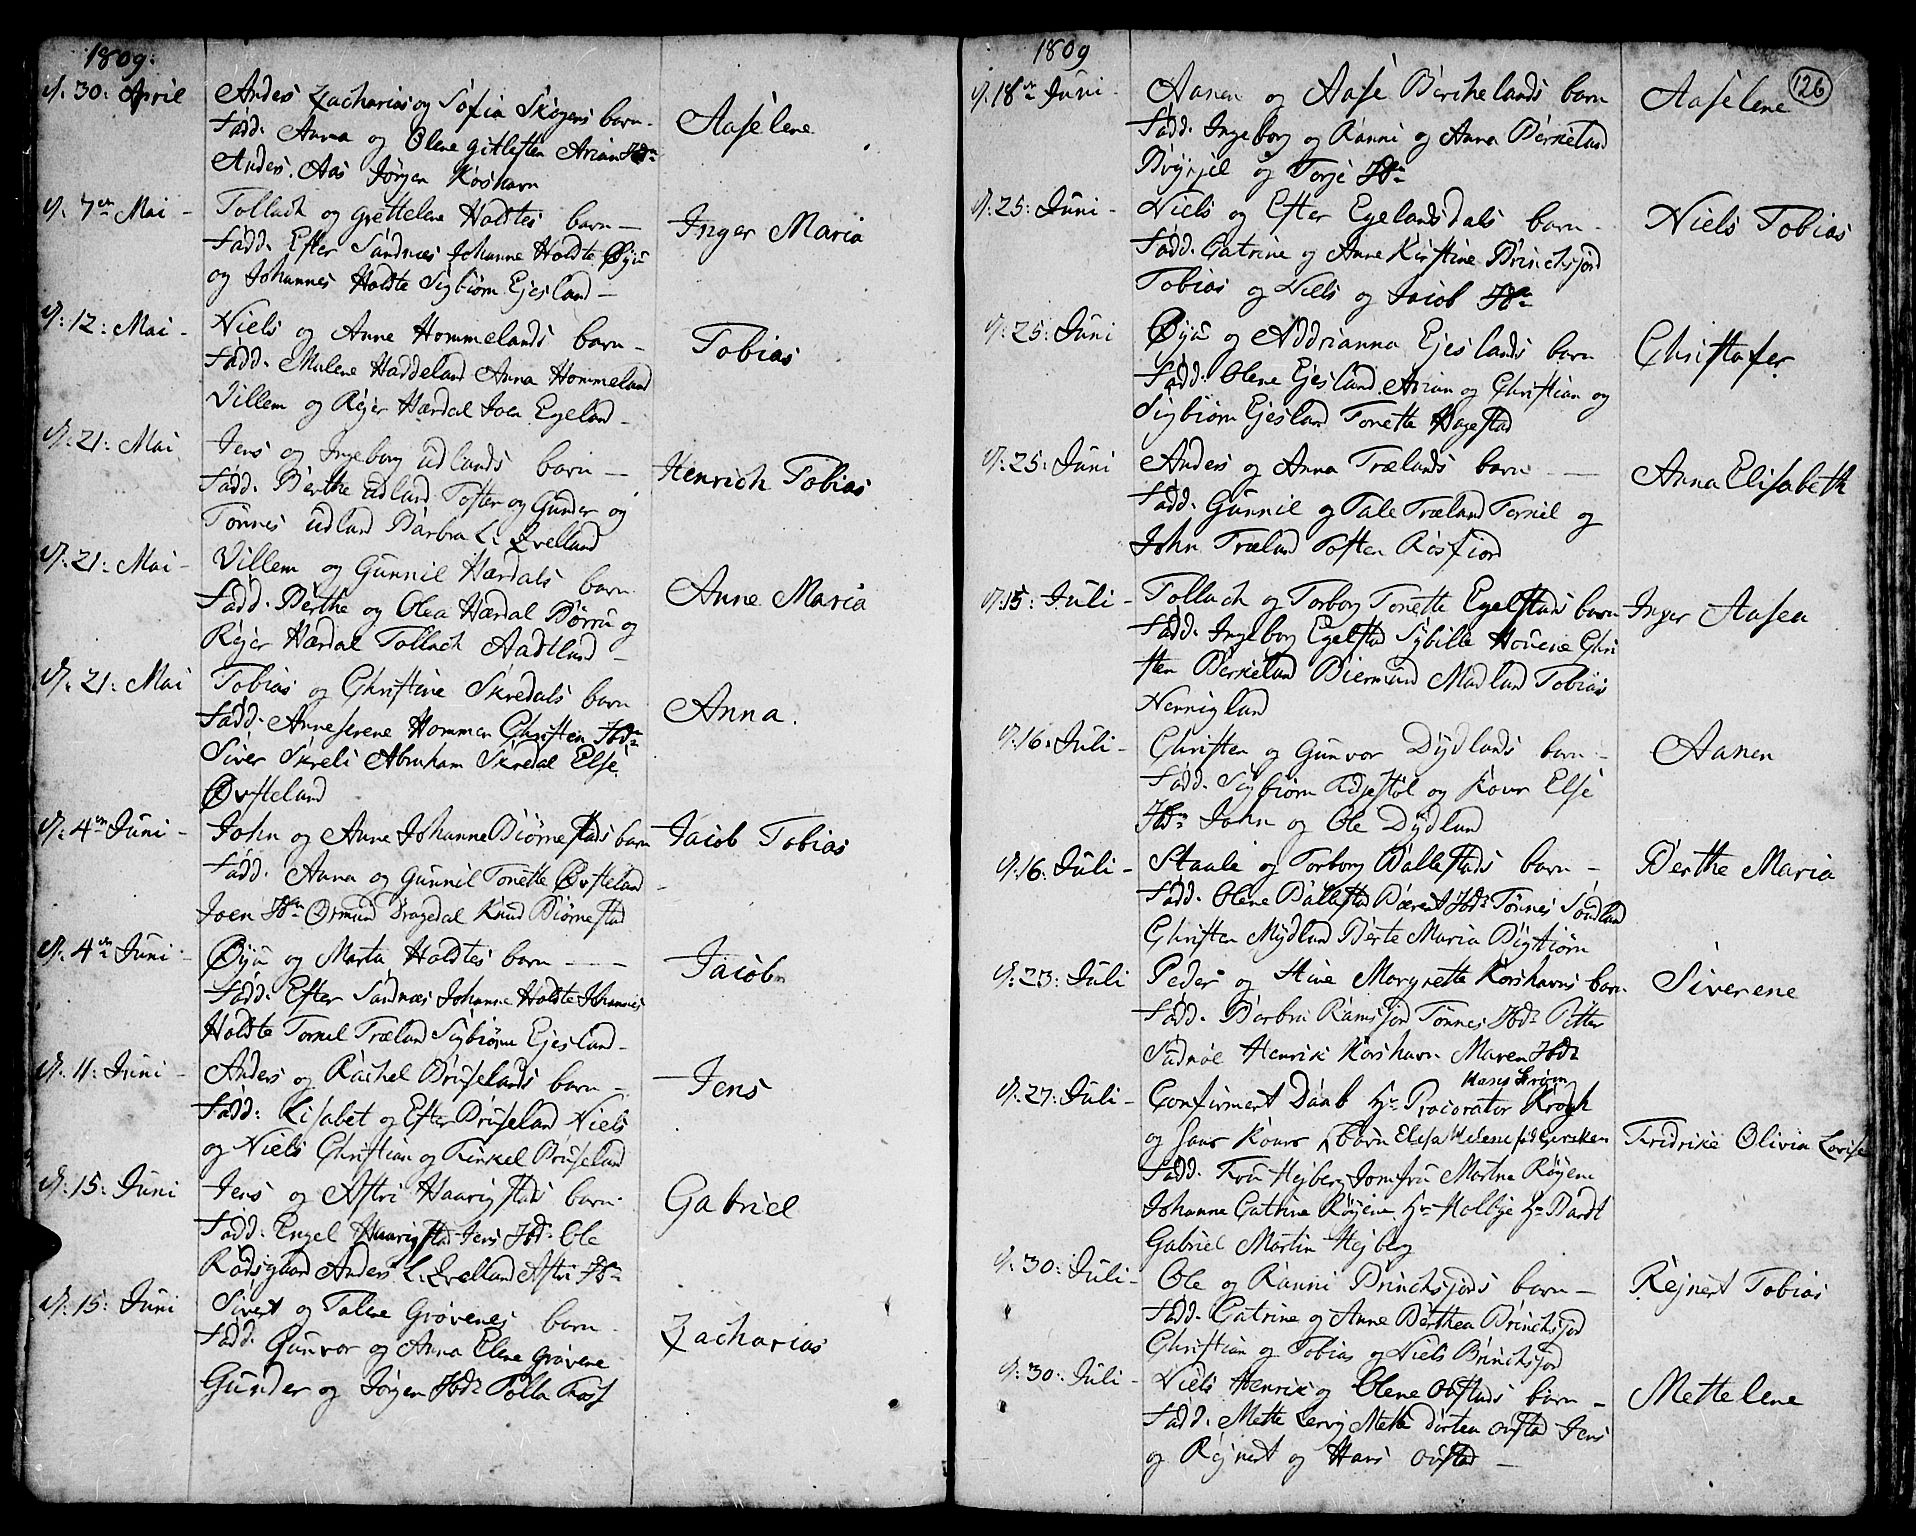 1809:
d: 30: April
Anders Zacharias og Sofia Skogens barn -
Fadd. Anna og Olene Gitlesten Arian Ibdn
Anders Aas Jörgen Koshavn
Aaselene
d. 7en Mai -
Tollach og Grettelene Holdtes barn -
Fadd. Ester Sandnæs Johanne Holdte Øÿü
og Johannes Holdte Sigbiörn Ejesland -
Inger Maria
d: 12: Mai -
Niels og Anne Hommelands barn -
Fadd. Malene Haddeland Anna Hommeland
Villem og Rejer Hærdal Joen Egeland -
Tobias
d: 21: Mai
Jens og Ingeborg Udlands barn -
Fadd. Berthe Udland Toster og Gunder og
Tönnes Udland Barbra L. Qvelland
Henrich Tobias
d: 21: Mai -
Villem og Gunnil Hærdals barn
Fadd. Berthe og Olea Hærdal Börrü og
Rejer Hærdal Tollach Aadtland -
Anne Maria
d: 21: Mai
Tobias og Christine Skredals barn
Fadd. Anneserene Hommen Christen Ibdn
Siver Skreli Abraham Skredal Else
Øvsteland
Anna.
d: 4en Juni -
John og Anne Johanne Biörnestads barn
Fadd. Anna og Gunnil Tonette Øvsteland -
Joen Ibdn Ormund Dragedal Knud Biörnestad
Jacob Tobias
d: 4en Juni -
Øÿü og Marta Holdtes barn - -
Fadd. Ester Sandnæs Johanne Holdte Johannes
Holdte Tornil Træland Sigbiörn Ejesland -
Jacob
d: 11: Juni -
Anders og Rachel Brüselands barn -
Fadd: Lisabet og Ester Brüseland Niels
og Niels Christian og Tinkel Brüseland
Jens
d: 15: Juni
Jens og Astri Haarigstads barn -
Fadd. Engel Haarigstad Jens Ibd. Ole
Rödsigland Anders L. Qvelland Astri Ibdn
Gabriel
d: 15: Juni
Sivert og Talene Grövenes barn -
Fadd. Gunvor og Anna Elene Grövene
Gunder og Jörgen Ibdn Tolla Foss
Zacharias
1809
126
d. 18de Juni -
Aanen og Aase Birchelands barn
Fadd. Ingeborg og Ranni og Anna Berkeland
Brynjel og Torje Ibdn
Aaselene
d. 25: Juni -
Niels og Ester Egelandsdals barn -
Fadd. Catrine og Anne Kirstine Brinchsfjord
Tobias og Niels og Jacob Ibdn
Niels Tobias
d: 25: Juni
Øÿü og Addrianna Ejeslands barn
Fadd. Olene Ejesland Arian og Christian og
Sigbiörn Ejesland Tonette Hagestad
Christafer
d: 25: Juni
Anders og Anna Trælands barn -
Fadd. Gunnil og Tale Træland Tornil og
John Træland Tosten Rosfiord
Anna Elisabeth
d: 15: Juli -
Tollach og Torborg Tonette Egelstads barn
Fadd. Ingeborg Egelstad Sybille Houene Chri
sten Berkeland Biermund Madland Tobias
Hennigland
Inger Aasea
d: 16: Juli -
Christen og Gunvor Dydlands barn -
Fadd. Sigbiörn Rejestöl og Kone Else
Ibdn John og Ole Dydland
Aanen
d: 16: Juli -
Staale og Torborg Ballestads barn -
Fadd. Olene Ballestad Berent Ibdn Tönnes Sodland
Christen Mydland Berte Maria Bigtiörn
Berthe Maria
d: 23: Juli
Peder og Stine Margrette Korshavns barn -
Fadd. Barbra Ramsfjord Tönnes Ibdn Petter
Sadnöe Henrik Korshavn Maren Ibdn
Siverene
d: 27: Juli -
Hans Ström
Confirmert Daab Hr Procorator Krogh
og hans Kones barn Elesa Helene föd Gercken
Fadd. Frü Hejberg Jomfrü Martna Röyem
Johanne Catrine Röyem Hr Holbye Hr Bardt
Gabriel Martin Hejberg
Fridrike Olivia Lovise
d: 30: Juli -
Ole og Ranni Brinchsfjords barn -
Fadd. Catrine og Anne Berthea Brinchsfjord
Christian og Tobias og Niels Brinchsfjord
Rejnert Tobias
d: 30: Juli -
Niels Henrik og Olene Ovstads barn -
Fadd. Mette Lervig Mette Dorten Ovstad Jens
og Rejnert og Hans Ovstad -
Mettelene